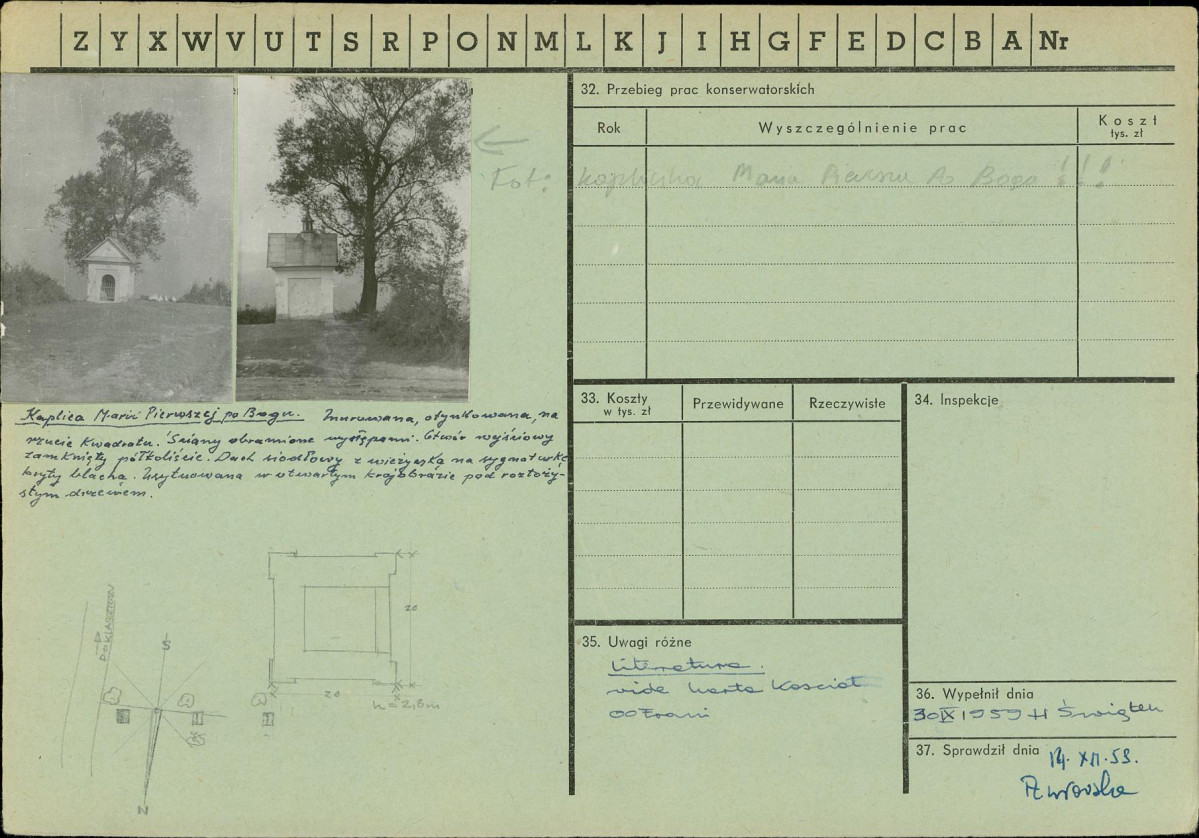 Z Y X W V U T S R P O N M L K J I H G F E D C B A Nr
32. Przebieg prac konserwatorskich
Rok
Wyszczególnienie prac
Koszt
tys. zł
Fot: kapliczka Maria Pierwsza Po Bogu !!!
Kaplica Marii Pierwszej po Bogu. Murowana, otynkowana, na
rzucie kwadratu. Ściany obramione występami. Otwór wejściowy
zamknięty półkoliście. Dach siodłowy z wieżyczką na sygnaturkę
kryty blachą. Usytuowana w otwartym krajobrazie pod rozłoży-
stym drzewem.
33. Koszty
w tys. zł
Przewidywane
Rzeczywiste
34. Inspekcje
DO KLASZTORU
S
N
20
20
h = 2,8m
35. Uwagi różne
Literatura.
vide karta Kościół
OO
36. Wypełnił dnia
30 IX 1959 H Święten
37. Sprawdził dnia
14. XII. 59.